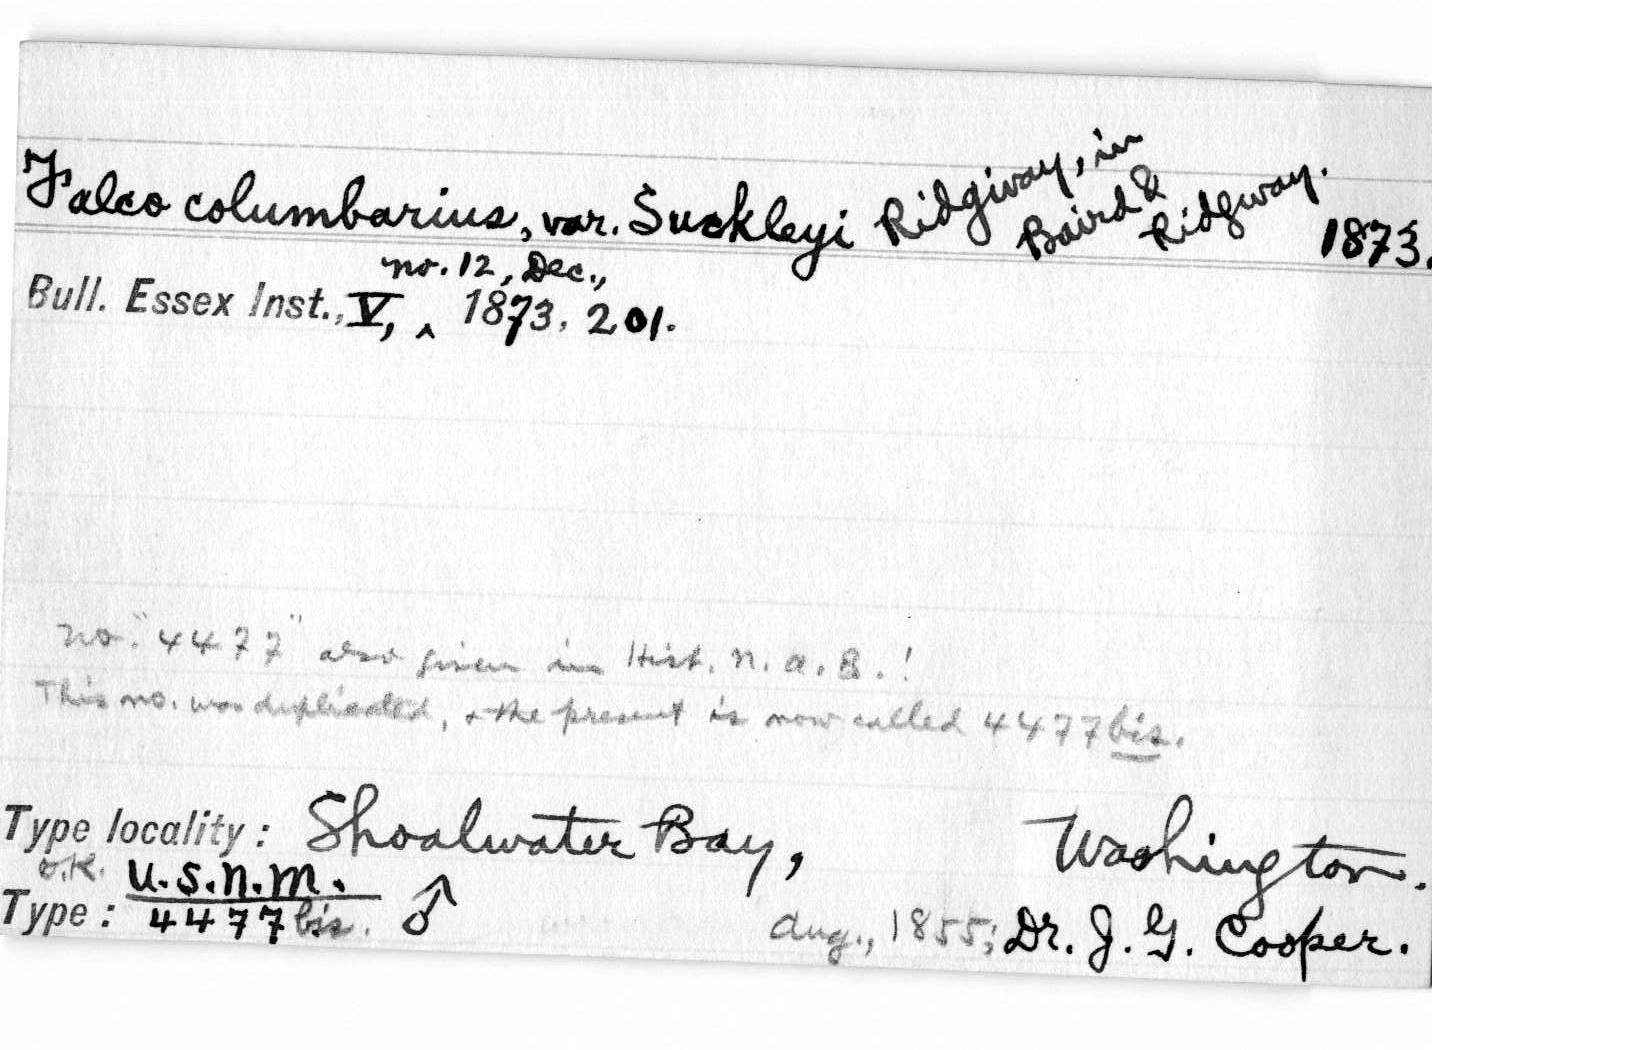 Falco columbarius, var. Suckleyi Ridgway, in Baird & Ridgway. 1873.
no. 12, Dec.,
Bull. Essex Inst., V, ^ 1873, 201.
no. "4477" also given in Hist. N. A. B.!
This no. was duplicated, & the present is now called 4477 bis.
Type locality: Shoalwater Bay, Washington.
O.K. U.S.N.M.
Type: 4477 bis. ♂ Aug., 1855; Dr. J. G. Cooper.